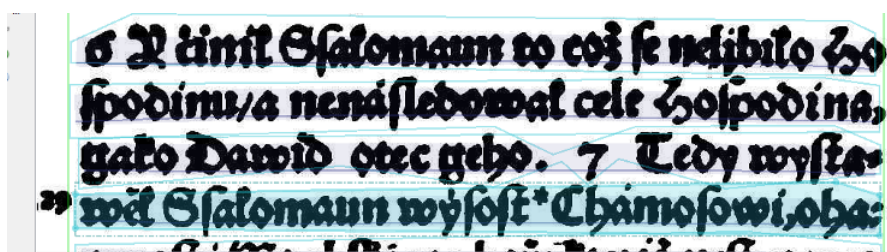 6 A činil Ssalomaun to což se nelijbilo Ho
spodinu/a nenásledowal cele Hospodina,
gako Dawid otec geho. 7 Tedy wysta-
wěl Ssalomaun wýsost* Chámosowi, oha-